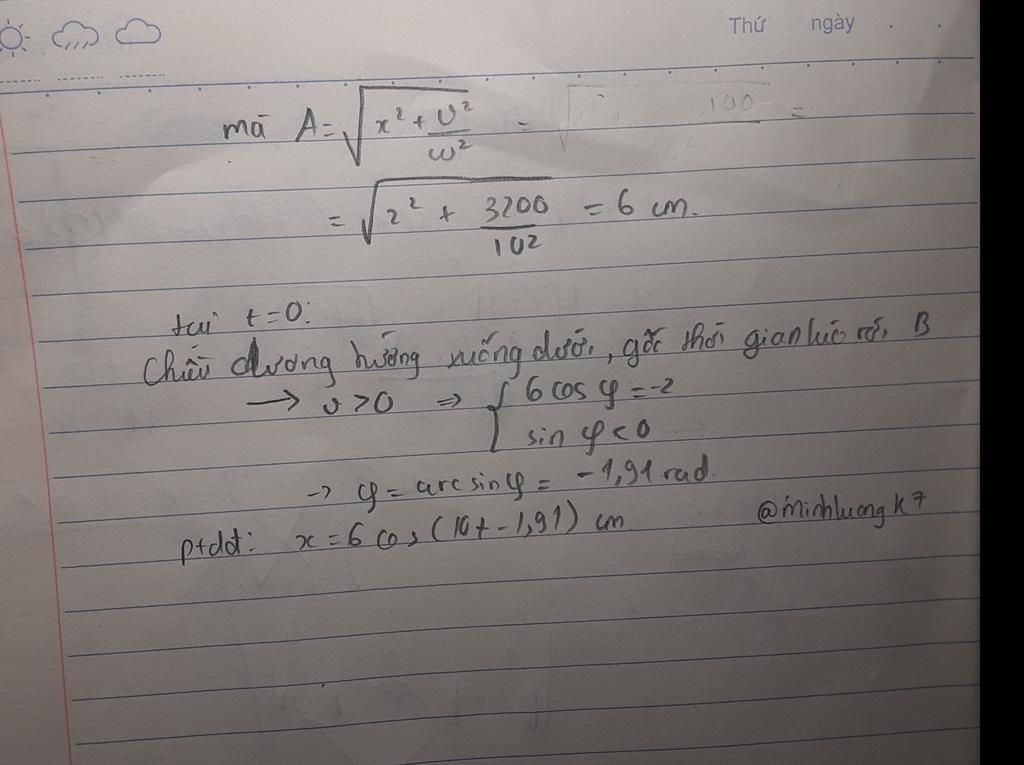 Thứ ngày
mà A = √(x² + v²/ω²) = √( 100 ) =
= √(2² + 3200/10²) = 6 cm.
tại t=0:
Chiều dương hướng xuống dưới, gốc thời gian lúc rời B
→ v>0 ⇒ { 6 cos φ = -2
sin φ < 0
→ φ = arc sin φ = -1,91 rad.
ptdđ: x = 6 cos (10t - 1,91) cm
@minhluongk7